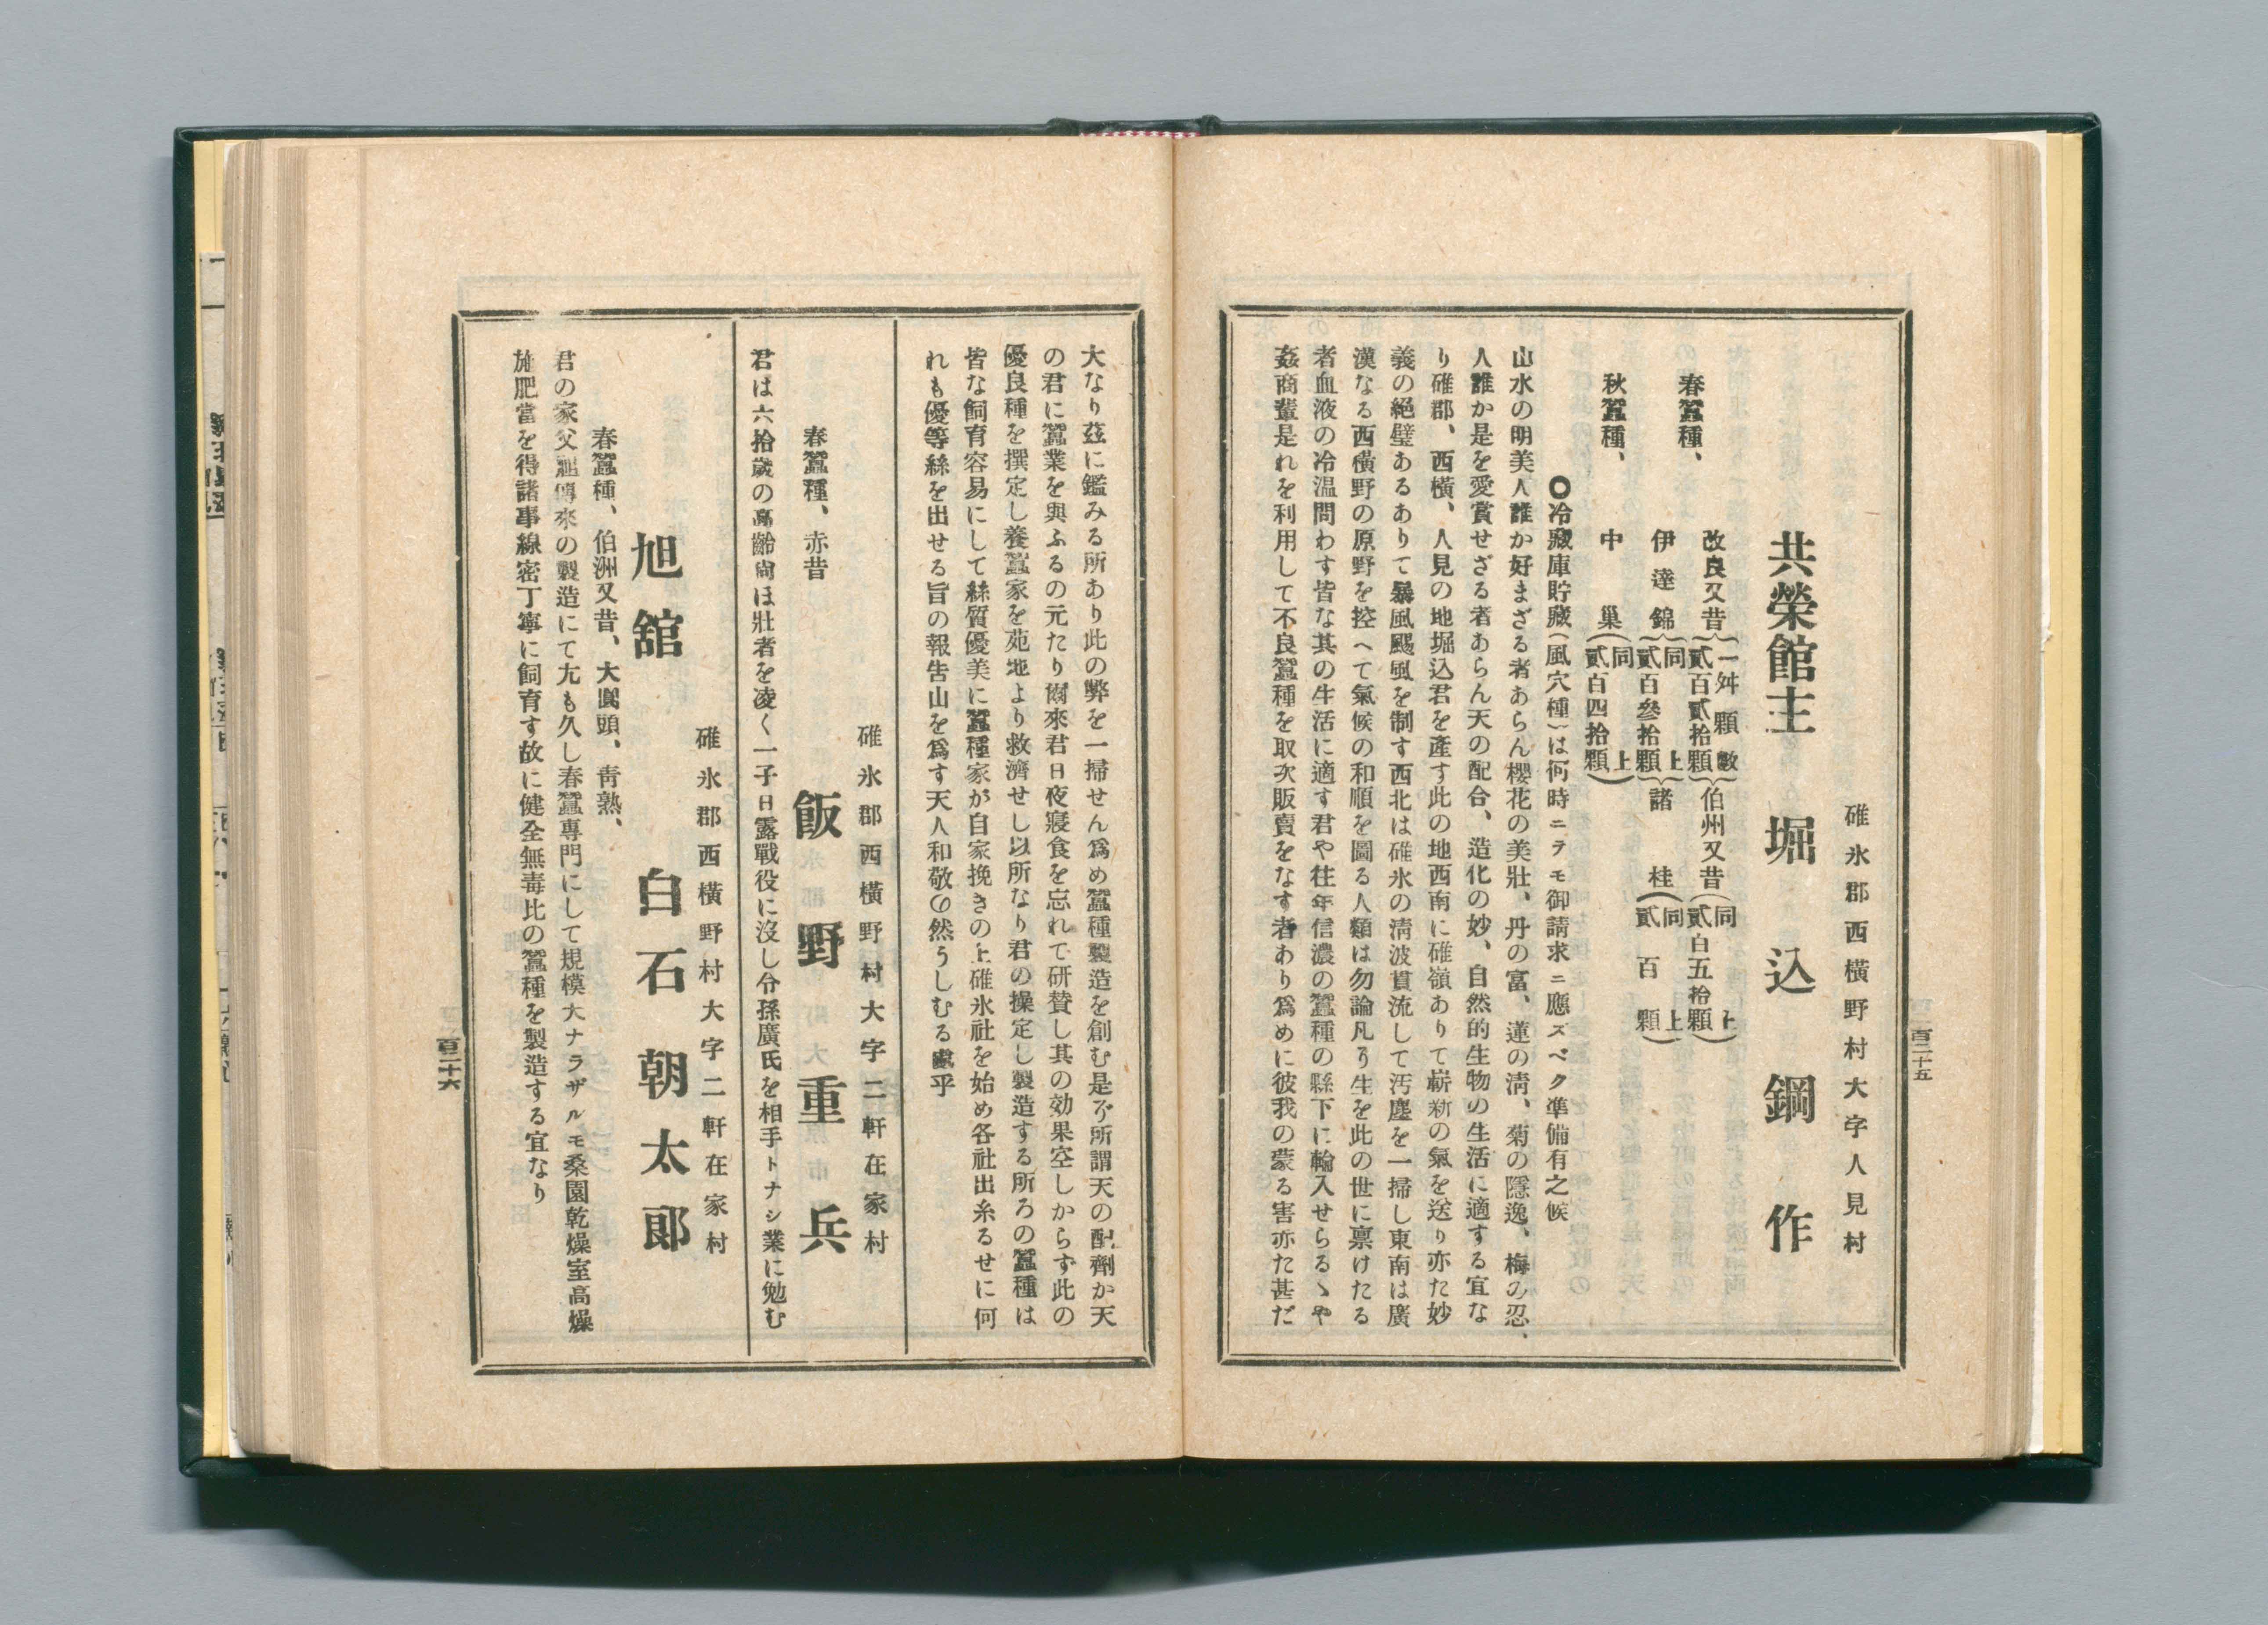 碓氷郡西横野村大字人見村
共榮館主　堀込鋼作
春蠶種、
改良又昔（一舛顆數 貳百貳拾顆）伯州又昔（同上 貳百五拾顆）
伊達錦（同上 貳百參拾顆）諸桂（同上 貳百顆）
秋蠶種、
中巢（同上 貳百四拾顆）
〇冷藏庫貯藏（風穴種）は何時ニテモ御請求ニ應ズベク準備有之候
山水の明美人誰か好まざる者あらん櫻花の美壯、丹の富、蓮の淸、菊の隱逸、梅の忍、
人誰か是を愛賞せざる者あらん天の配合、造化の妙、自然的生物の生活に適する宜な
り碓郡、西橫、人見の地堀込君を產す此の地西南に碓嶺ありて嶄新の氣を送り亦た妙
義の絕壁あるありて暴風颶風を制す西北は碓氷の淸波貫流して汚塵を一掃し東南は廣
漠なる西橫野の原野を控へて氣候の和順を圖る人類は勿論凡り生を此の世に稟けたる
者血液の冷温問わす皆な其の生活に適す君や往年信濃の蠶種の縣下に輸入せらるゝや
姦商輩是れを利用して不良蠶種を取次販賣をなす者あり爲めに彼我の蒙る害亦た甚だ
百二十五
大なり茲に鑑みる所あり此の弊を一掃せん爲め蠶種製造を創む是り所謂天の配劑か天
の君に蠶業を與ふるの元たり爾來君日夜寢食を忘れて研賛し其の効果空しからず此の
優良種を撰定し養蠶家を苑地より救濟せし以所なり君の操定し製造する所ろの蠶種は
皆な飼育容易にして絲質優美に蠶種家が自家挽きの上碓氷社を始め各社出糸るせに何
れも優等絲を出せる旨の報吿山を爲す天人和敬の然うしむる處乎
碓氷郡西橫野村大字二軒在家村
飯野重兵
春蠶種、赤昔
君は六拾歲の高齡尙ほ壯者を凌く一子日露戰役に沒し令孫廣氏を相手トナシ業に勉む
碓氷郡西橫野村大字二軒在家村
旭舘　白石朝太郎
春蠶種、伯洲又昔、大圓頭、靑熟、
君の家父祖傳來の製造にて尤も久し春蠶專門にして規模大ナラザルモ桑園乾燥室高燥
施肥當を得諸事線密丁寧に飼育す故に健全無毒比の蠶種を製造する宜なり
百二十六